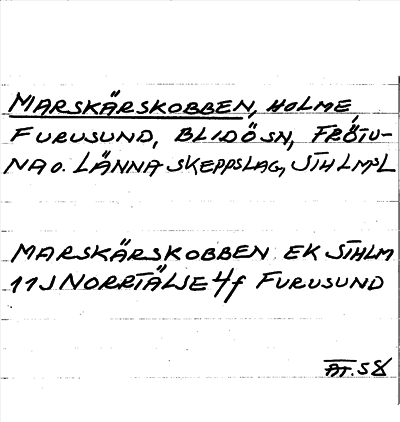 MARSKÄRSKOBBEN, HOLME,
FURUSUND, BLIDÖ SN, FRÖTU-
NA O. LÄNNA SKEPPSLAG, STHLMSL
MARSKÄRSKOBBEN EK STHLM
11J NORRTÄLJE 4f FURUSUND
AT. 58